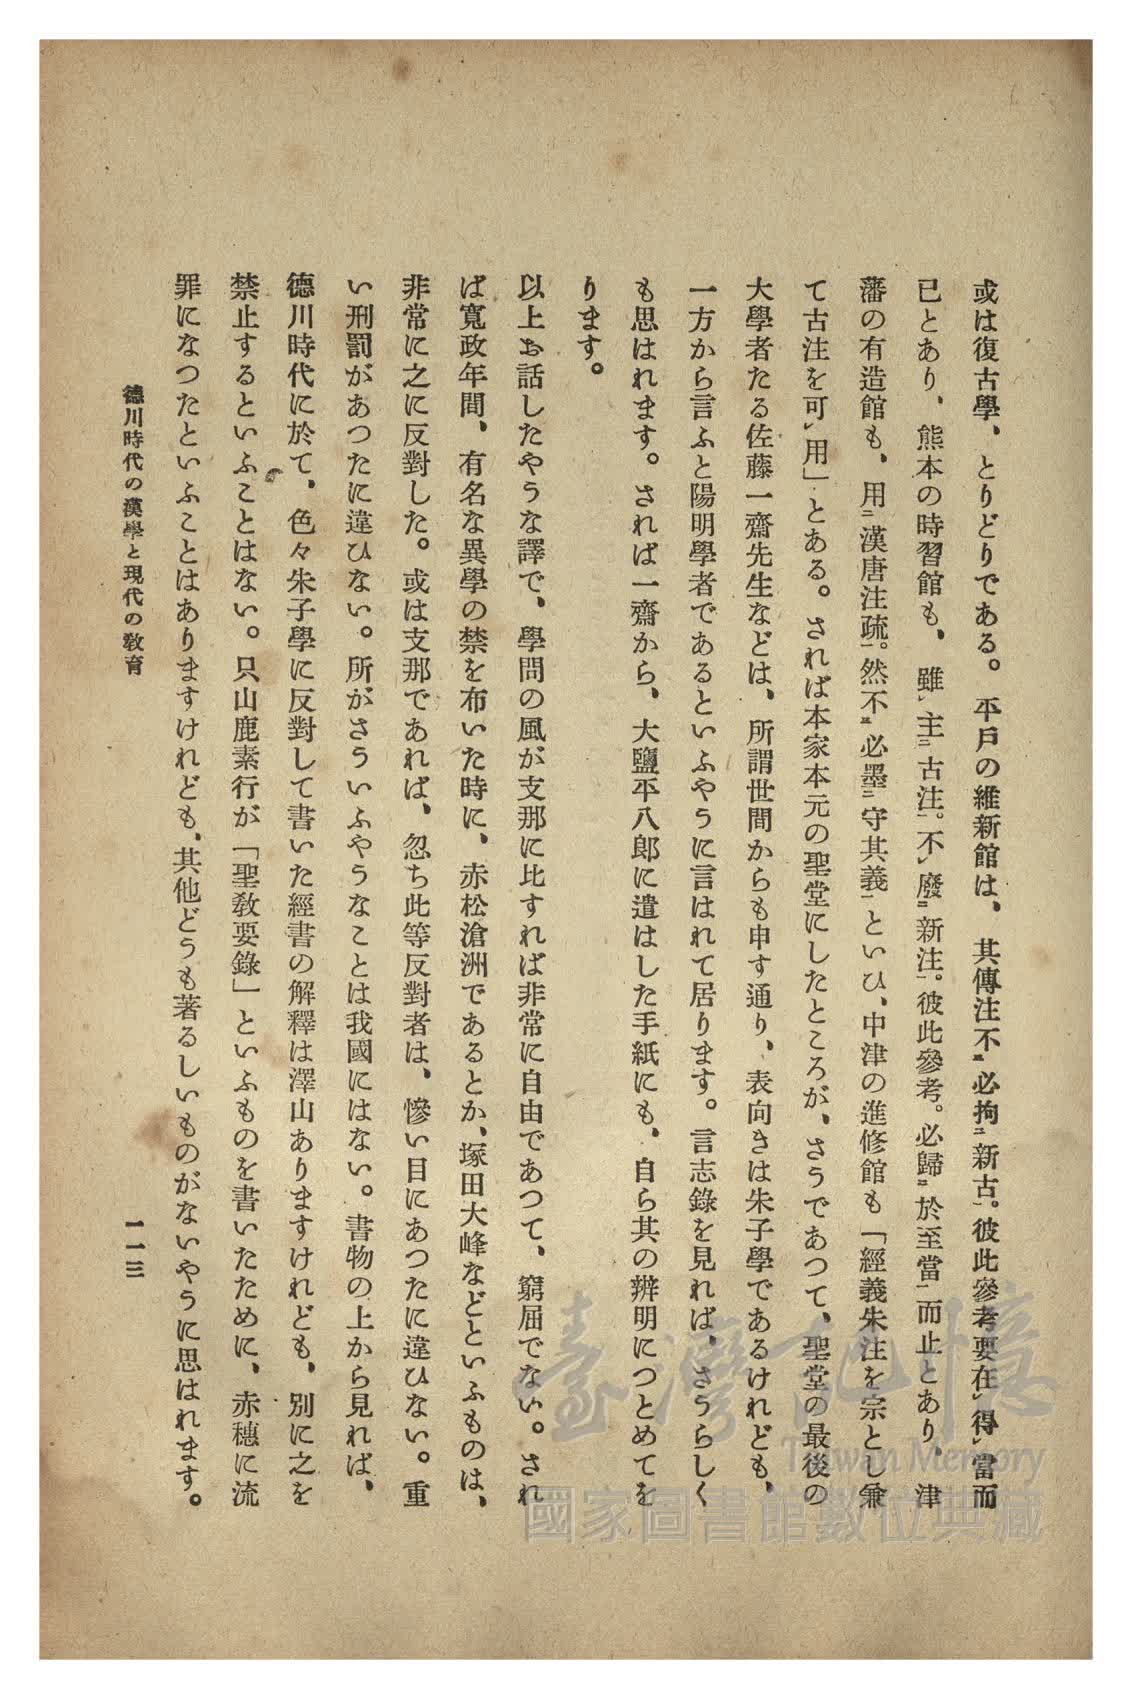 或は復古學、とりどりである。平戸の維新館は、其傳注不㆓必拘㆓新古㆒。彼此參考要在㆑得㆑當而
已とあり、熊本の時習館も、雖㆑主㆓古注㆒。不㆑廢㆓新注㆒。彼此參考。必歸㆓於至當㆒而止とあり、津
藩の有造館も、用㆓漢唐注疏㆒。然不㆔必墨㆓守其義㆒といひ、中津の進修館も「經義朱注を宗とし兼
て古注を可㆑用」とある。されば本家本元の聖堂にしたところが、さうであつて、聖堂の最後の
大學者たる佐藤一齋先生などは、所謂世間からも申す通り、表向きは朱子學であるけれども、
一方から言ふと陽明學者であるといふやうに言はれて居ります。言志錄を見れば、さうらしく
も思はれます。されば一齋から、大鹽平八郎に遣はした手紙にも、自ら其の辨明につとめてを
ります。
以上お話したやうな譯で、學問の風が支那に比すれば非常に自由であつて、窮屈でない。され
ば寬政年間、有名な異學の禁を布いた時に、赤松滄洲であるとか、塚田大峰などといふものは、
非常に之に反對した。或は支那であれば、忽ち此等反對者は、慘い目にあつたに違ひない。重
い刑罰があつたに違ひない。所がさういふやうなことは我國にはない。書物の上から見れば、
德川時代に於て、色々朱子學に反對して書いた經書の解釋は澤山ありますけれども、別に之を
禁止するといふことはない。只山鹿素行が「聖教要錄」といふものを書いたために、赤穗に流
罪になつたといふことはありますけれども、其他どうも著るしいものがないやうに思はれます。
德川時代の漢學と現代の敎育
一一三
臺灣記憶
Taiwan Memory
國家圖書館數位典藏